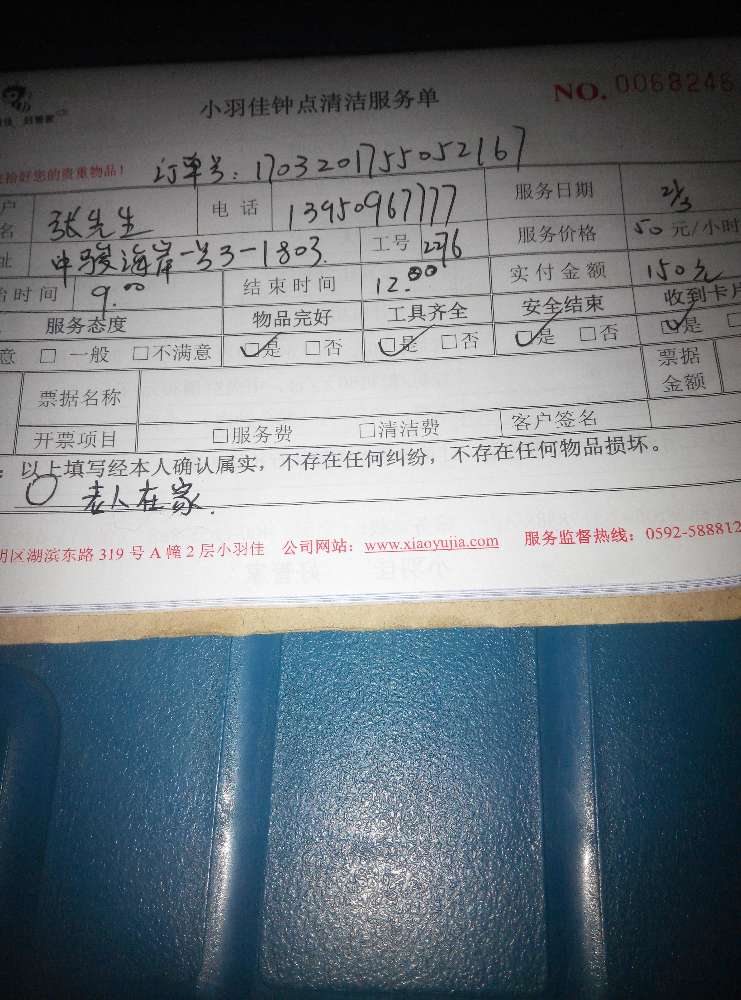 小羽佳钟点清洁服务单 NO. 0068246
佳 好管家
拾好您的贵重物品! 订单号:1703201755052167
户名 张先生 电话 13950967777 服务日期 21/3
址 中骏海岸一号3-1803. 工号 2276 服务价格 50元/小时
时间 9.00 结束时间 12.00 实付金额 150元
服务态度 物品完好 工具齐全 安全结束 收到卡片
意 □一般 □不满意 ☑是 □否 ☑是 □否 ☑是 □否 ☑是 □
票据名称 票据金额
开票项目 □服务费 □清洁费 客户签名
:以上填写经本人确认属实,不存在任何纠纷,不存在任何物品损坏。
老人在家.
明区湖滨东路319号A幢2层小羽佳 公司网站:www.xiaoyujia.com 服务监督热线:0592-588812